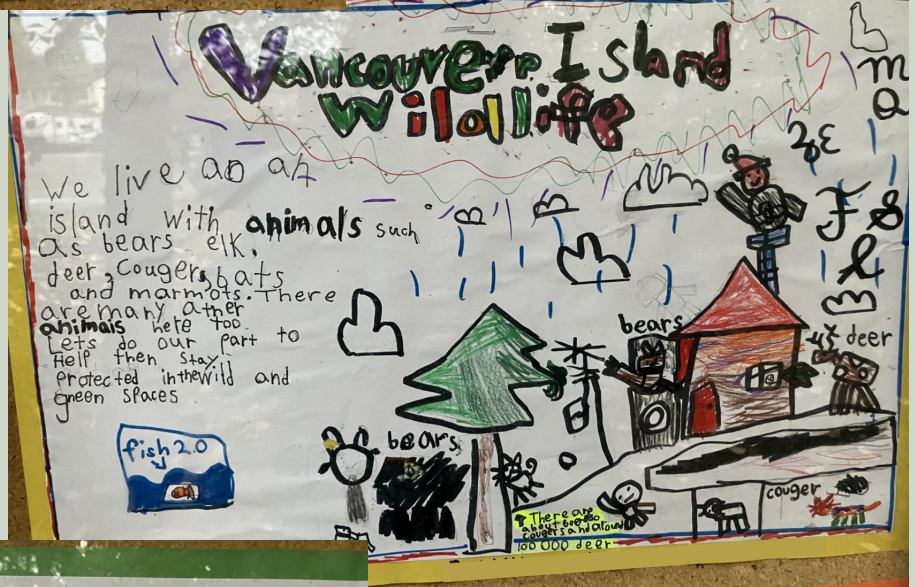 Vancouverr Island
Wildlife
We live an an
island with animals such
as bears elk,
deer, Cougers, bats
and marmots. There
are many ather
animals here too.
Lets do our part to
Help then Stay
protected in the wild and
green Spaces
fish 2.0
bears
bears
deer
couger
There are
cougers and around
100 000 deer
m
Q
F S
l